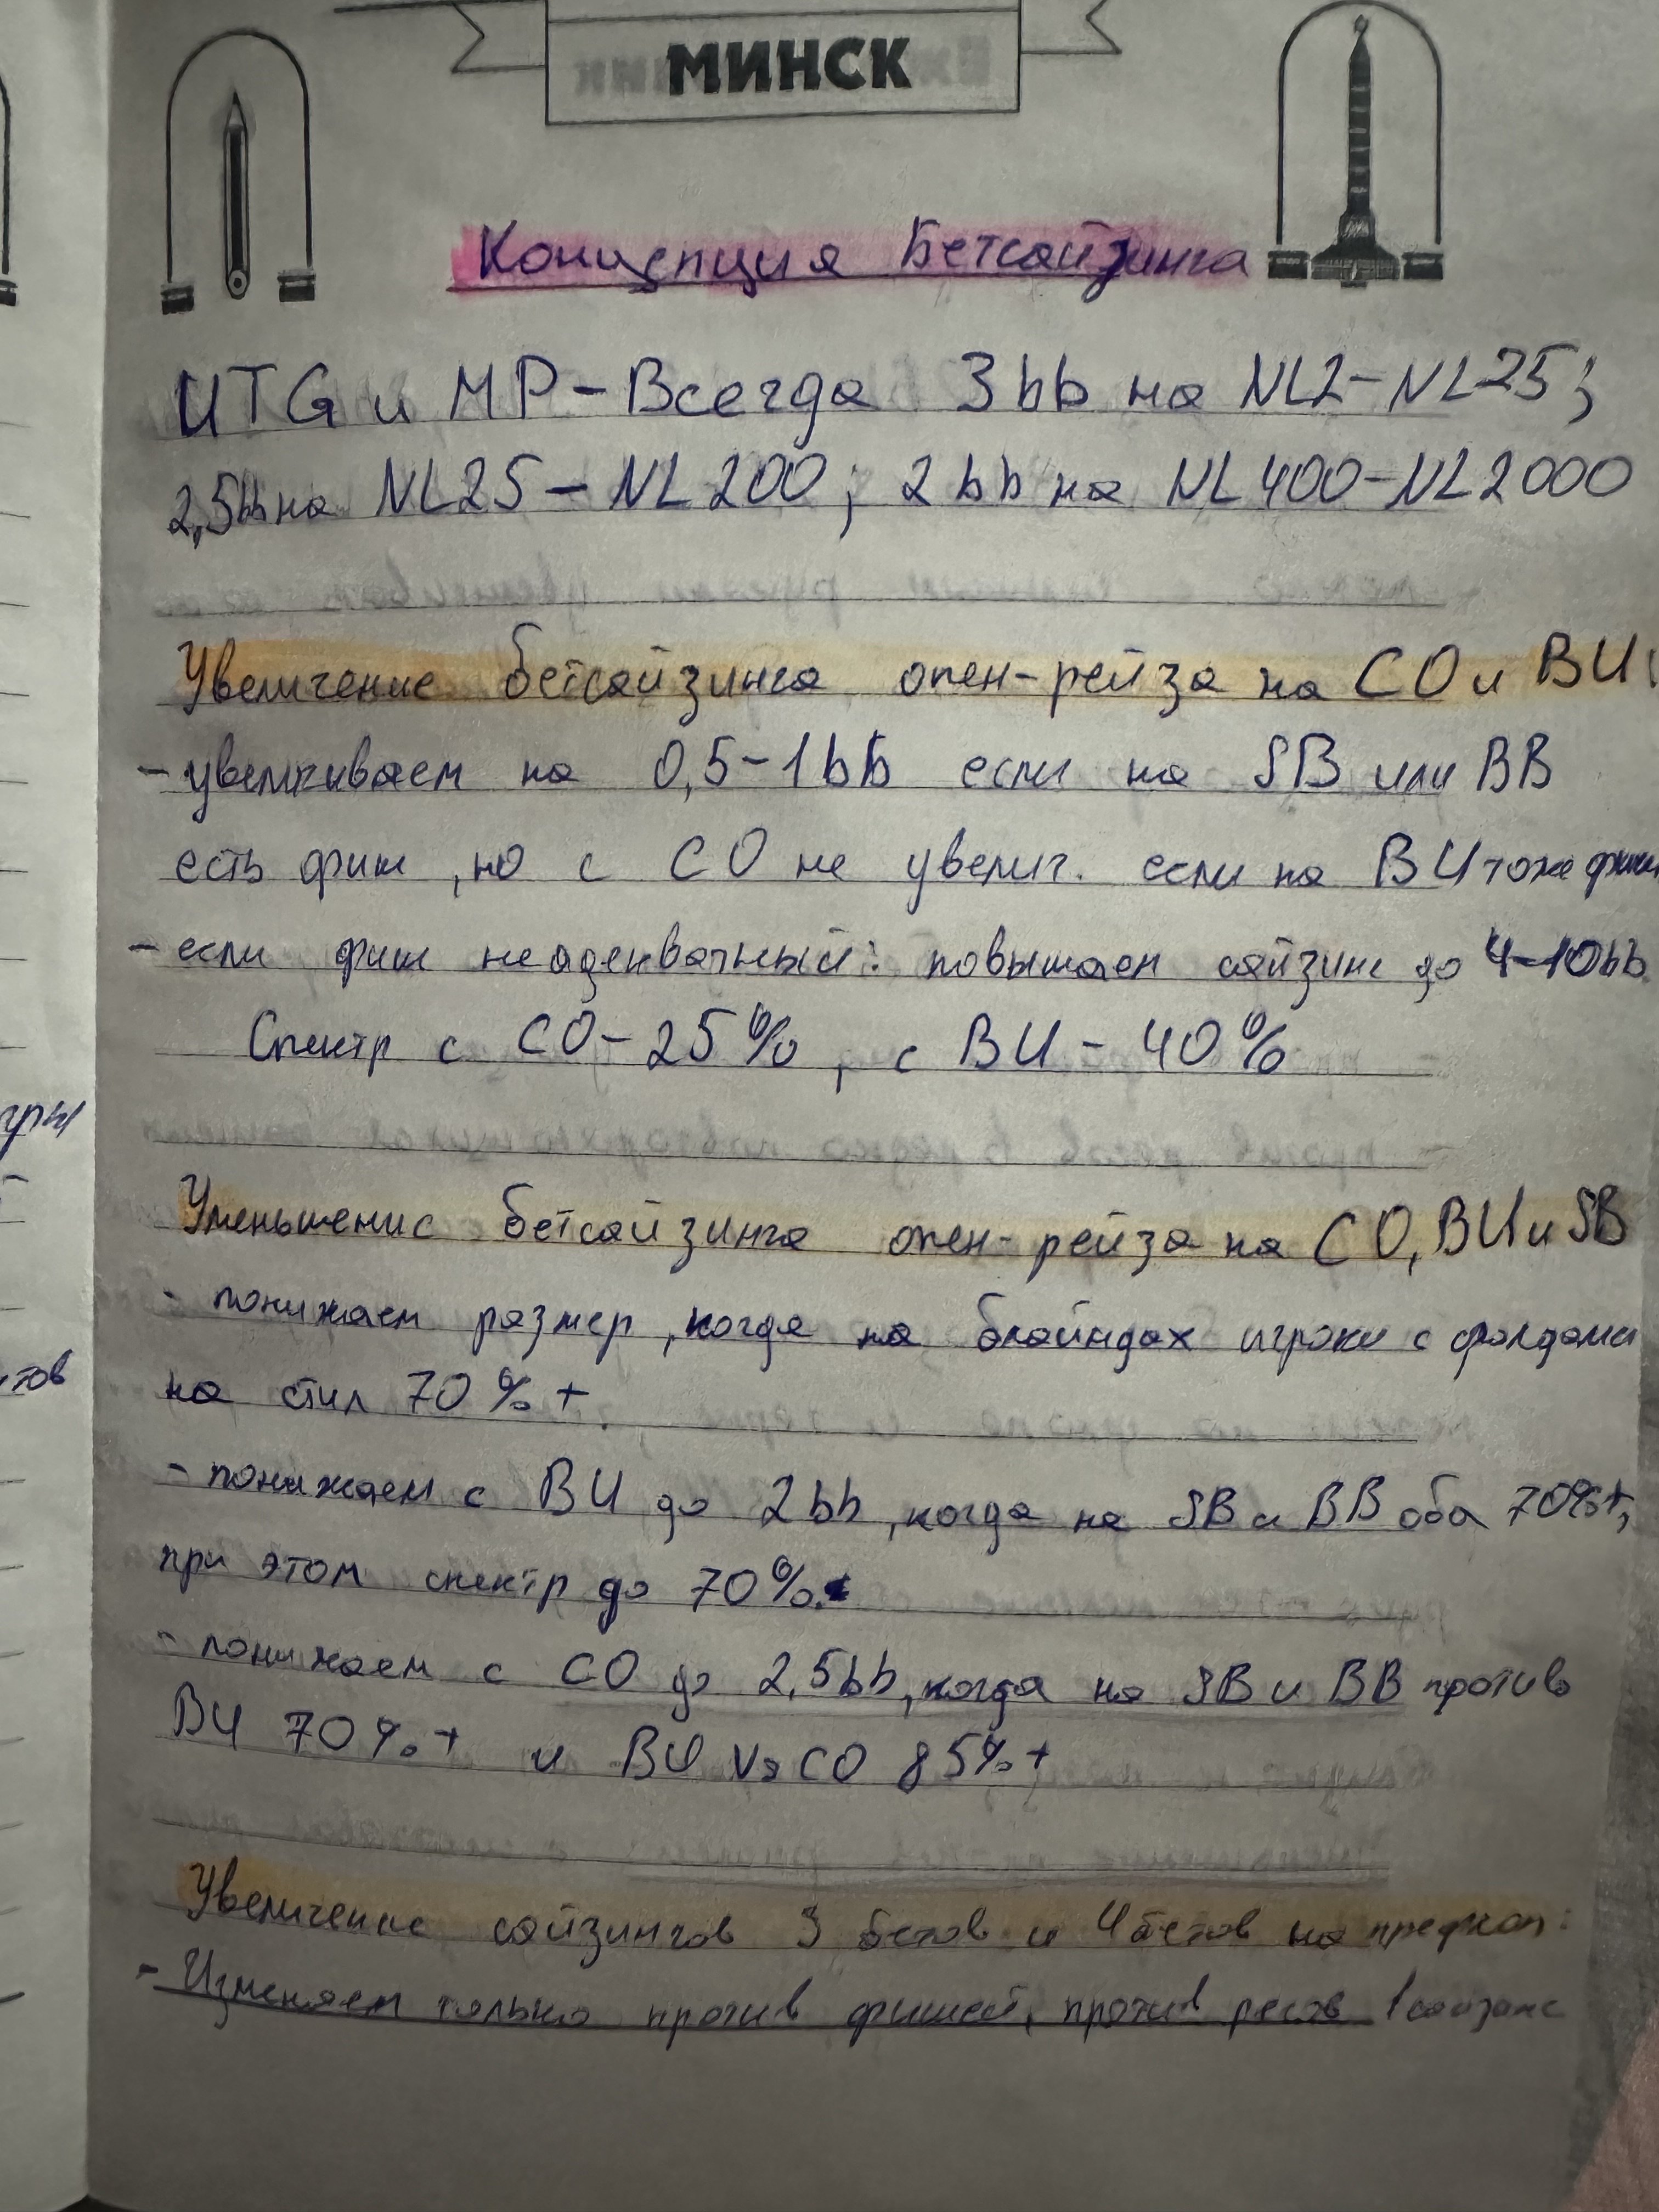 МИНСК
Концепция Бетсайзинга
UTG и MP - Всегда 3bb на NL2-NL25;
2,5bb на NL25 - NL200; 2bb на NL400-NL2000
Увеличение бетсайзинга опен-рейза на CO и BU:
- увеличиваем на 0,5-1bb если на SB или BB
есть фиш, но с CO не увелич. если на BU тоже фиш
- если фиш неадекватный: повышаем сайзинг до 4-10bb.
Спектр с CO - 25%, с BU - 40%
Уменьшение бетсайзинга опен-рейза на CO, BU и SB
- понижаем размер, когда на блайндах игроки с фолдами
на стил 70%+.
- понижаем с BU до 2bb, когда на SB и BB оба 70%+,
при этом спектр до 70%.
- понижаем с CO до 2,5bb, когда на SB и BB против
BU 70%+ и BU vs CO 85%+
Увеличение сайзингов 3 бетов и 4бетов на префлоп:
- Изменяем только против фишей, против регов 1 сайзинг
гры
тов